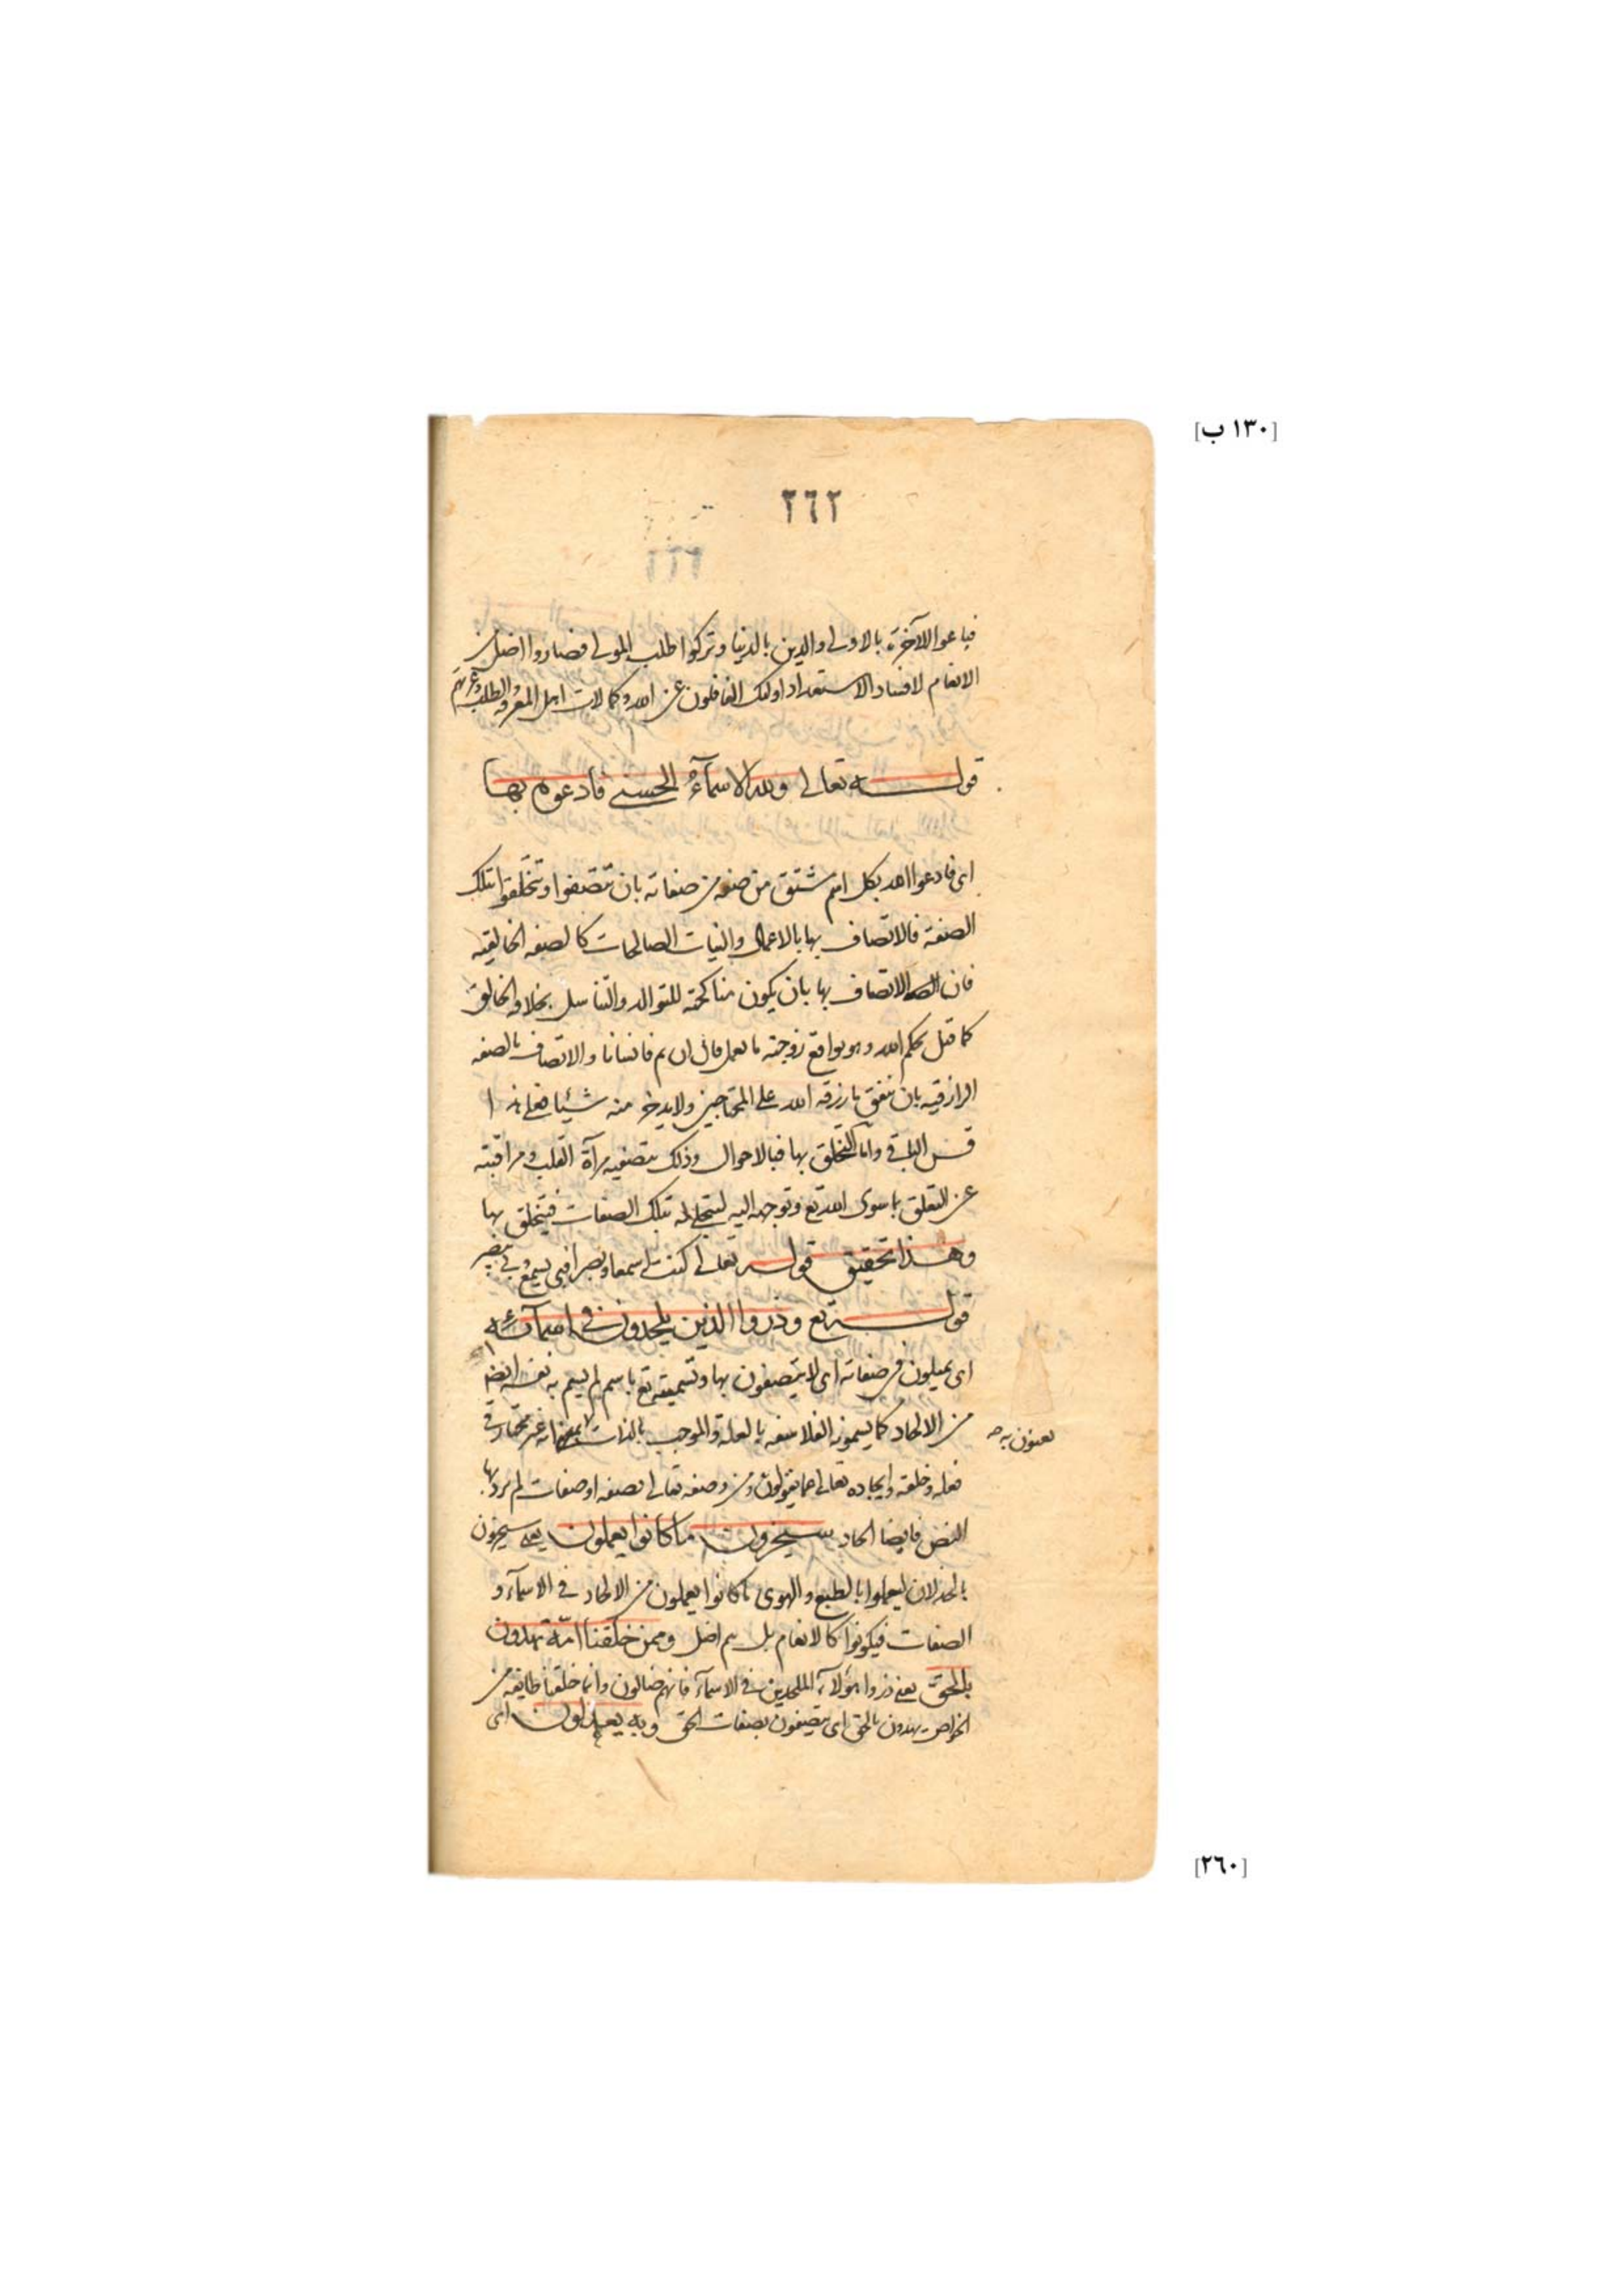 [١٣٠ ب]
٢٦٢
فباعوا الآخرة بالاولى والدين بالدنيا وتركوا طلب المولى فصاروا اضل من
الانعام لافساد الاستعداد اولئك الغافلون عن الله وكمالات اهل المعرفة والطلب وعزتهم
قوله تعالى ولله الاسمآء الحسنى فادعوه بها
اى فادعوا الله بكل اسم مشتق من صفة من صفاته بان تتصفوا وتخلقوا بتلك
الصفة فالاتصاف بها بالاعمال والنيات الصالحات كالصفه الخالقيه
فان الاتصاف بها بان يكون مناكحته للتوالد والتناسل بخلاف الخالق
كما قيل لحكيم الله وهو يواقع زوجته ما تعمل قال ان تم فانسانا والاتصاف بالصفه
الرازقيه بان ينفق ما رزقه الله على المحتاجين ولا يدخر منه شيئا فعلى هذا
قس الباقى واما التخلق بها فبالاحوال وذلك بتصفيه مرآة القلب ومراقبته
عن التعلق بما سوى الله تع وتوجهه اليه ليتجلى له بتلك الصفات فيتخلق بها
وهذا تحقيق قوله تعالى كنت له سمعا وبصرا فبى يسمع وبى يبصر
قوله تع وذروا الذين يلحدون فى اسمآئه
اى يميلون فى صفاته اى لا يتصفون بها وتسميته تع باسم لم يسم به نفسه ايضا
من الالحاد كما يسمونه الفلاسفه بالعلة والموجب بالذات غير مختار فى
يعنون به
فعله وخلقه وايجاده تعالى عما يقولون ومن وصفه تعالى بصفه او صفات لم يرد بها
النص فايضا الحاد سيجزون ما كانوا يعملون يعنى سيجزون
بالخذلان ليعملوا بالطبع والهوى ما كانوا يعملون من الالحاد فى الاسمآء و
الصفات فيكونوا كالانعام بل هم اضل وممن خلقنا امّة يهدون
بالحقّ يعنى ذروا هؤلآء الملحدين فى الاسمآء فانهم ضالون وانما خلقنا طايفه من
الخواص يهدون بالحق اى يتصفون بصفات الحق وبه يعدلون اى
[٢٦٠]